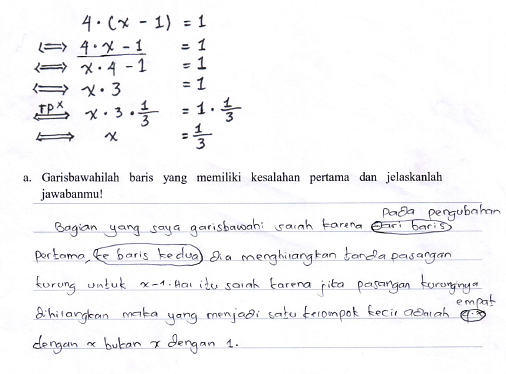 4 · (x - 1) = 1
⟺ 4 · x - 1 = 1
⟺ x · 4 - 1 = 1
⟺ x · 3 = 1
TPX ⟺ x · 3 · 1/3 = 1 · 1/3
⟺ x = 1/3
a. Garisbawahilah baris yang memiliki kesalahan pertama dan jelaskanlah
jawabanmu!
pada pengubahan
Bagian yang saya garisbawahi salah karena dari baris
pertama, ke baris kedua dia menghilangkan tanda pasangan
kurung untuk x-1. Hal itu salah karena jika pasangan kurungnya
empat
dihilangkan maka yang menjadi satu kelompok kecil adalah
dengan x bukan x dengan 1.